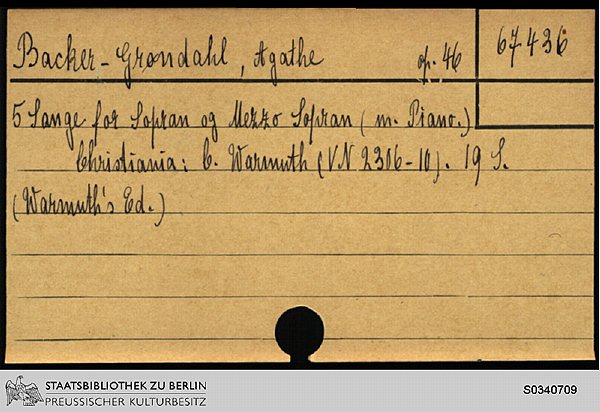 Backer-Grøndahl, Agathe op. 46 67436
5 Sange for Sopran og Mezzo Sopran (m. Piano.)
Christiania: C. Warmuth (V.N. 2306-10). 19 S.
(Warmuth's Ed.)
STAATSBIBLIOTHEK ZU BERLIN
PREUSSISCHER KULTURBESITZ
S0340709